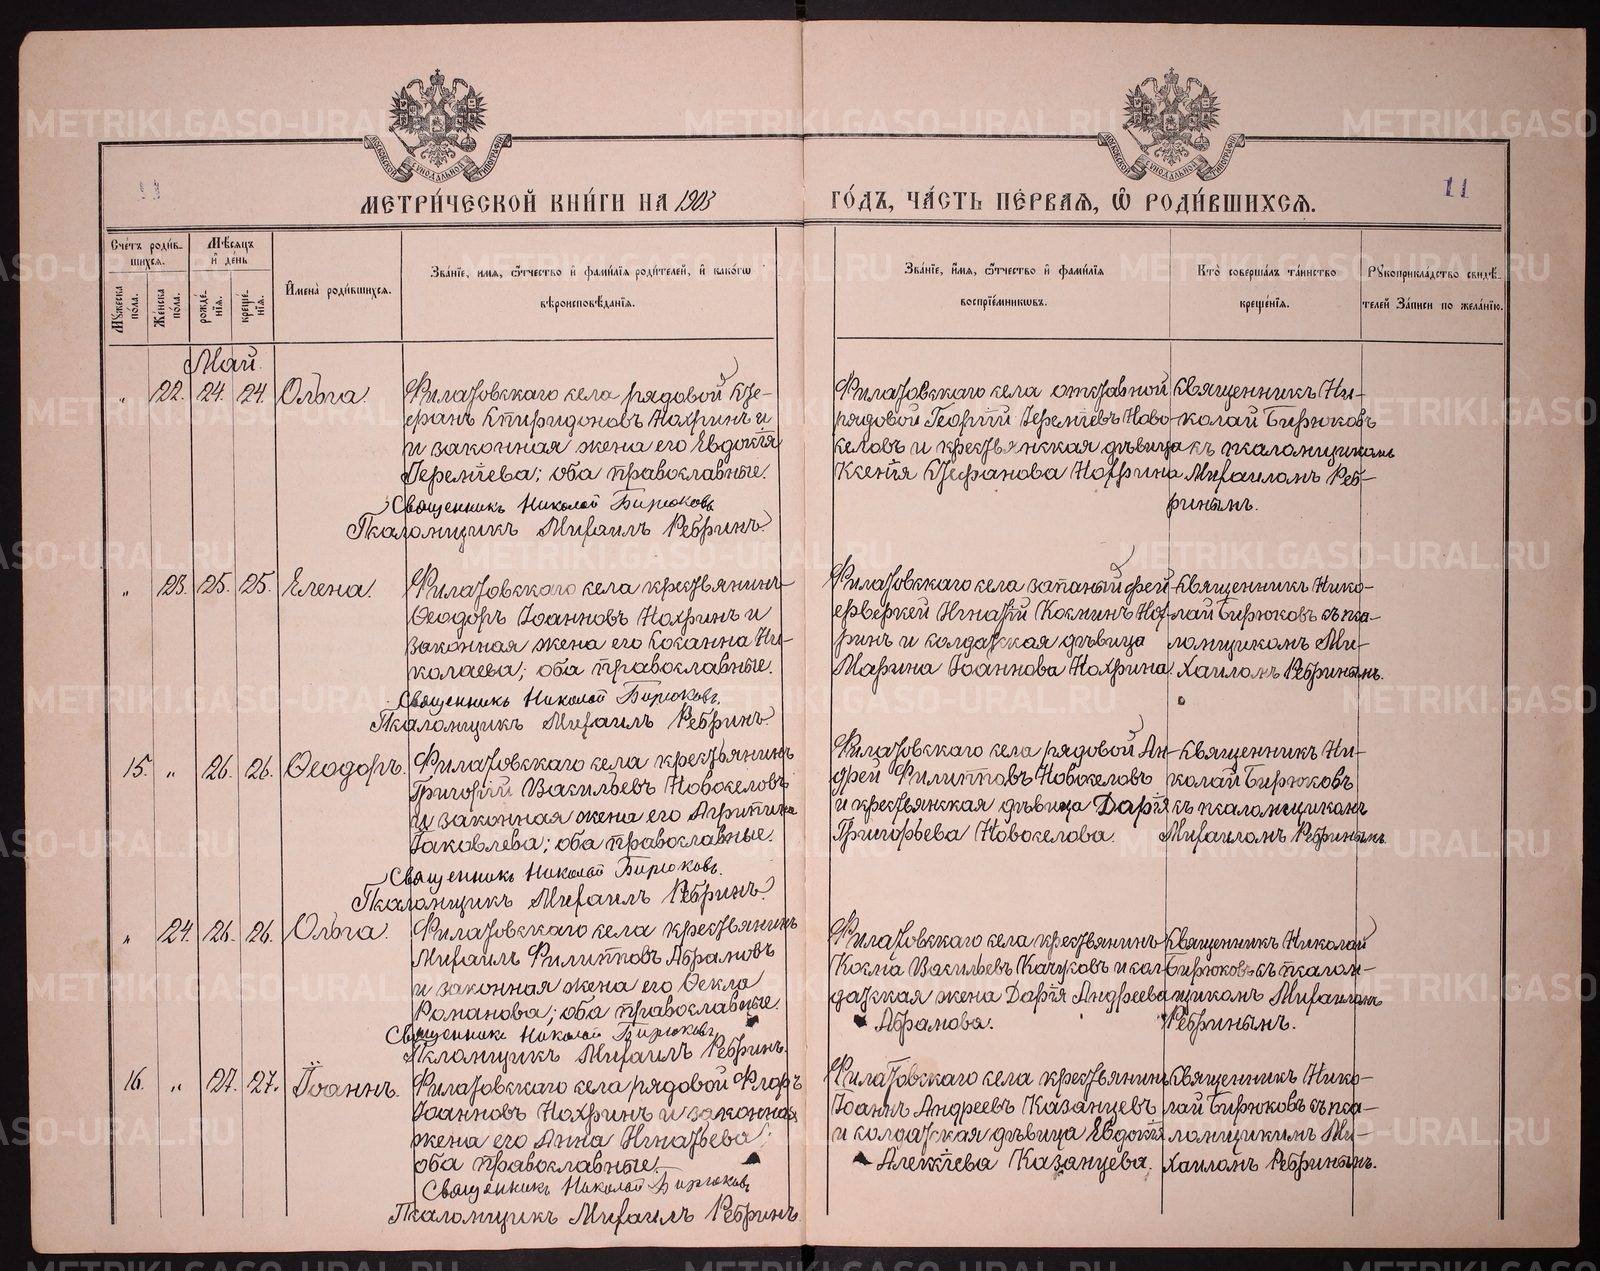 МЕТРИ́ЧЕСКОЙ КНИ́ГИ НА 1903
ГО́ДЪ, ЧА́СТЬ ПЕ́РВАЯ, Ѡ҆ РОДИ́ВШИХСЯ.
11
Сче́тъ роди́в-
шихся.
Мѣ́сяцъ
и҆ де́нь
Му́жеска
по́ла.
Же́нска
по́ла.
рожде́-
нія.
креще́-
нія.
И҆мена̀ роди́вшихся.
Зва́ніе, имя, ѻ҆́тчество и҆ фами́лія роди́телей, и҆ како́гѡ
вѣроисповѣ́данія.
Зва́ніе, и҆́мя, ѻ҆́тчество и҆ фами́лія
воспріе́мниковъ.
Кто̀ соверша́лъ та́инство
креще́нія.
Рꙋкоприкла́дство свидѣ́-
телей За́писи по жела́нію.
Май.
„ 22. 24. 24. Ольга.
Филатовскаго села рядовой Сте-
фанъ Спиридоновъ Нохринъ и
и законная жена его Евдокія
Терентіева; оба православные.
Священникъ Николай Бирюковъ
Псаломщикъ Михаилъ Ребринъ.
Филатовскаго села отставной
рядовой Георгій Терентіевъ Ново-
селовъ и крестьянская дѣвица
Ксенія Стефанова Нохрина
Священникъ Ни-
колай Бирюковъ
съ псаломщикомъ
Михаиломъ Реб-
ринымъ.
„ 23. 25. 25. Елена.
Филатовскаго села крестьянинъ
Ѳеодоръ Іоанновъ Нохринъ и
законная жена его Сосанна Ни-
колаева; оба православные.
Священникъ Николай Бирюковъ.
Псаломщикъ Михаилъ Ребринъ.
Филатовскаго села запасный фей-
ерверкей Игнатій Косминъ Нох-
ринъ и солдатская дѣвица
Марина Іоаннова Нохрина.
Священникъ Нико-
лай Бирюковъ съ пса-
ломщикомъ Ми-
хаиломъ Ребринымъ.
15. „ 26. 26. Ѳеодоръ.
Филатовскаго села крестьянинъ
Григорій Васильевъ Новоселовъ
и законная жена его Агрипина
Іаковлева; оба православные.
Священникъ Николай Бирюковъ.
Псаломщикъ Михаилъ Ребринъ.
Филатовскаго села рядовой Ан-
дрей Филипповъ Новоселовъ
и крестьянская дѣвица Дарія
Григорьева Новоселова.
Священникъ Ни-
колай Бирюковъ
съ псаломщикомъ
Михаиломъ Ребринымъ.
„ 24. 26. 26. Ольга.
Филатовскаго села крестьянинъ
Михаилъ Филипповъ Абрамовъ
и законная жена его Ѳекла
Романова; оба православные.
Священникъ Николай Бирюковъ
Псаломщикъ Михаилъ Ребринъ.
Филатовскаго села крестьянинъ
Косма Васильевъ Качуковъ и сол-
датская жена Дарія Андреева
Абрамова.
Священникъ Николай
Бирюковъ съ псалом-
щикомъ Михаиломъ
Ребринымъ.
16. „ 27. 27. Іоаннъ.
Филатовскаго села рядовой Флоръ
Іоанновъ Нохринъ и законная
жена его Анна Игнатьева;
оба православные.
Священникъ Николай Бирюковъ
Псаломщикъ Михаилъ Ребринъ
Филатовскаго села крестьянинъ
Іоаннъ Андреевъ Казанцевъ
и солдатская дѣвица Евдокія
Алексіева Казанцева.
Священникъ Нико-
лай Бирюковъ съ пса-
ломщикимъ Ми-
хаиломъ Ребринымъ.